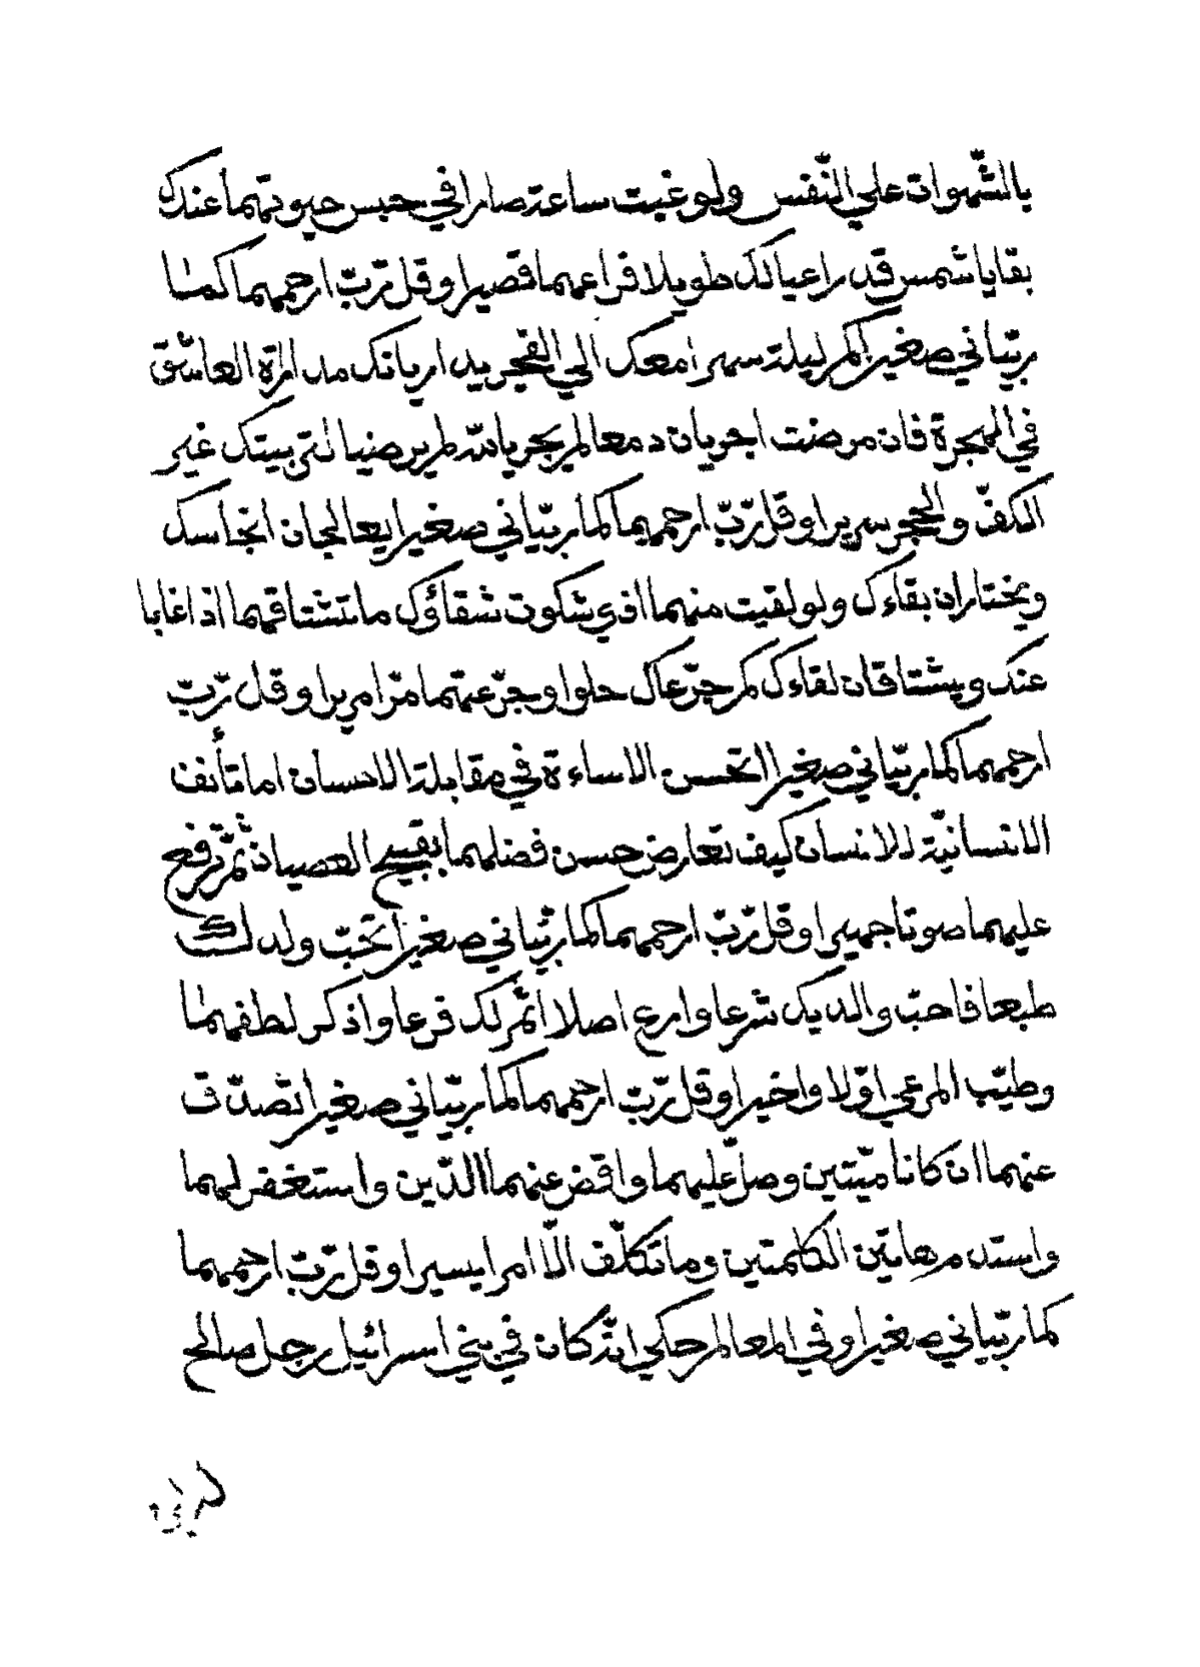 بالشّهوات علي النّفس ولو غبت ساعة صارا في حبس حيوتهما عندك
بقايا شمس قد راعياك طويلا فراعهما قصيرا وقل رّبّ ارحمهما كما
ربّياني صغيرا كم ليلة سهرا معك الي الفجر يداريانك مداراة العاشق
في الهجرة فان مرضت اجريان دمعا لم يجر بالله لم يرضيا لتربيتك غير
الكفّ والحجر سريرا وقل رّبّ ارحمهما كما ربّياني صغيرا يعالجان انجاسك
ويختاران بقاءك ولو لقيت منهما اذي شكوت شقاؤك ما تشتاقهما اذا غابا
عنك ويشتاقان لقاءك كم جرّعاك حلوا وجرّعتهما مرّا مريرا وقل رّبّ
ارحمهما كما ربّياني صغيرا اتحسن الاساءة في مقابلة الاحسان اما تأنف
الانسانيّة للانسان كيف تعارض حسن فضلهما بقبيح العصيان ثمّ ترفع
عليهما صوتا جهيرا وقل رّبّ ارحمهما كما ربّياني صغيرا تحبّ ولدك
طبعا فاحبّ والديك شرعا وارع اصلا اثمر لك فرعا واذكر لطفهما
وطيّب المرعي اوّلا واخيرا وقل رّبّ ارحمهما كما ربّياني صغيرا تصدّق
عنهما ان كانا ميّتين وصلّ عليهما واقض عنهما الدّين واستغفر لهما
واستدم هاتين الكلمتين وما تكلّف الّا امرا يسيرا وقل رّبّ ارحمهما
كما ربّياني صغيرا وفي المعالم حكي انّه كان في بني اسرائيل رجل صالح